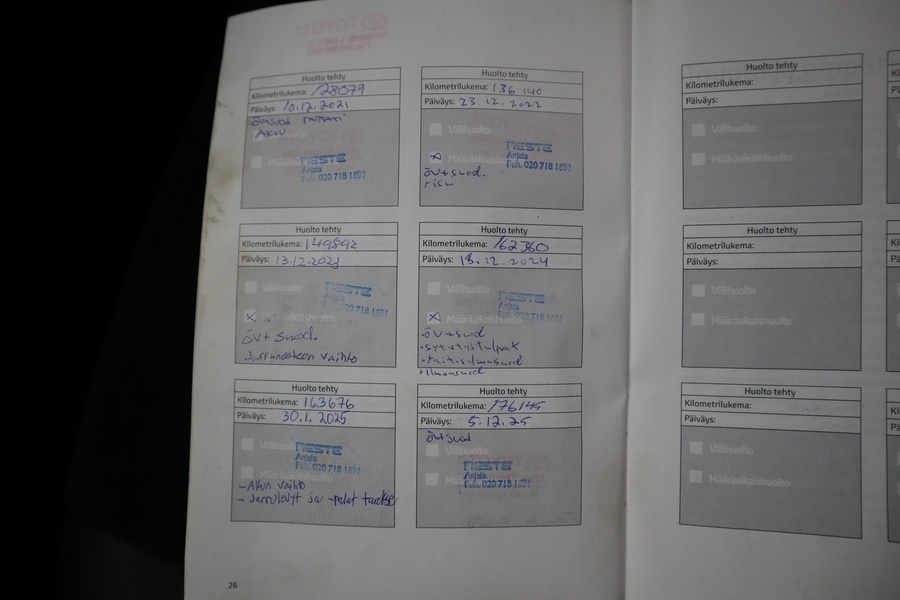 Huolto tehty
Kilometrilukema: 128079
Päiväys: 10.12.2021
Akku
NESTE
Anjala
Puh. 020 718 1691
Huolto tehty
Kilometrilukema: 136 140
Päiväys: 23.12.2022
Välihuolto
Määräaikaishuolto
NESTE
Anjala
Puh. 020 718 1691
öv+suod.
Huolto tehty
Kilometrilukema: 149892
Päiväys: 13.12.2023
Välihuolto
NESTE
Anjala
Puh. 020 718 1691
Määräaikaishuolto
öv+suod.
Jarrunesteen vaihto
Huolto tehty
Kilometrilukema: 162360
Päiväys: 18.12.2024
Välihuolto
NESTE
Anjala
Puh. 020 718 1691
Määräaikaishuolto
öv+suod
sytytystulpat
raitisilmasuod
ilmansuod
Huolto tehty
Kilometrilukema: 163676
Päiväys: 30.1.2025
Välihuolto
NESTE
Anjala
Puh. 020 718 1691
-Akun vaihto
-Jarrulevyt ja -palat taakse
Huolto tehty
Kilometrilukema: 176145
Päiväys: 5.12.25
öv+suod
Välihuolto
NESTE
Anjala
Puh. 020 718 1691
26
Huolto tehty
Kilometrilukema:
Päiväys:
Välihuolto
Määräaikaishuolto
Huolto tehty
Kilometrilukema:
Päiväys:
Välihuolto
Määräaikaishuolto
Huolto tehty
Kilometrilukema:
Päiväys:
Välihuolto
Määräaikaishuolto